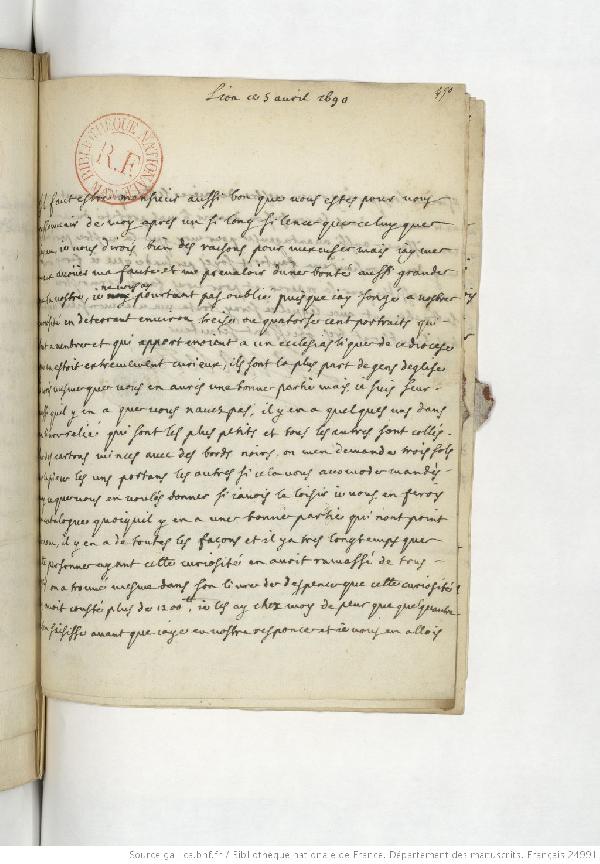 Lion ce 5 avril 1690
450
BIBLIOTHEQUE NATIONALE
R.F
MAN
Il faut estre monsieur aussi bon que vous estes pour vous
souvenir de moy apres un si long silence que celuy que
ie vous dirois bien des raisons pour mexcuser mais iayme
avoüer ma faute et me prevaloir dune bonté aussi grande
que la vostre, ie ne vous ay pourtant pas oublié puisque iay songé a vostre
curiosité en deterrant environ treise ou quatorse cent portraits qui
sont a vendre et qui appartenoient a un ecclesiastique de ce diocese
qui estoit extremement curieux, ils sont la plus part de gens deglise
que vous en aurés une bonne partie mais ie suis seur
aussi quil y en a que vous navez pas, il y en a quelques uns dans
un livre relié qui sont les plus petits et tous les autres sont collés
sur des cartons minces avec des bords noirs, on men demande trois sols
de la piece les uns portans les autres si cela vous accomode mandés
ce que vous en voulés donner si iavois le loisir ie vous en ferois
un catalogue quoiquil y en a une bonne partie qui nont point
de nom, il y en a de toutes les façons et il y a tres longtemps que
cette personne ayant cette curiosité en avoit ramassé de tous
on a trouvé mesme dans son livre de despence que cette curiosité
avoit cousté plus de 1200 lt, ie les ay chez moy de peur que quelquautre
sen saisisse avant que iaye eu vostre responce et ie vous en allois
Source gallica.bnf.fr / Bibliothèque nationale de France. Département des manuscrits. Français 24991